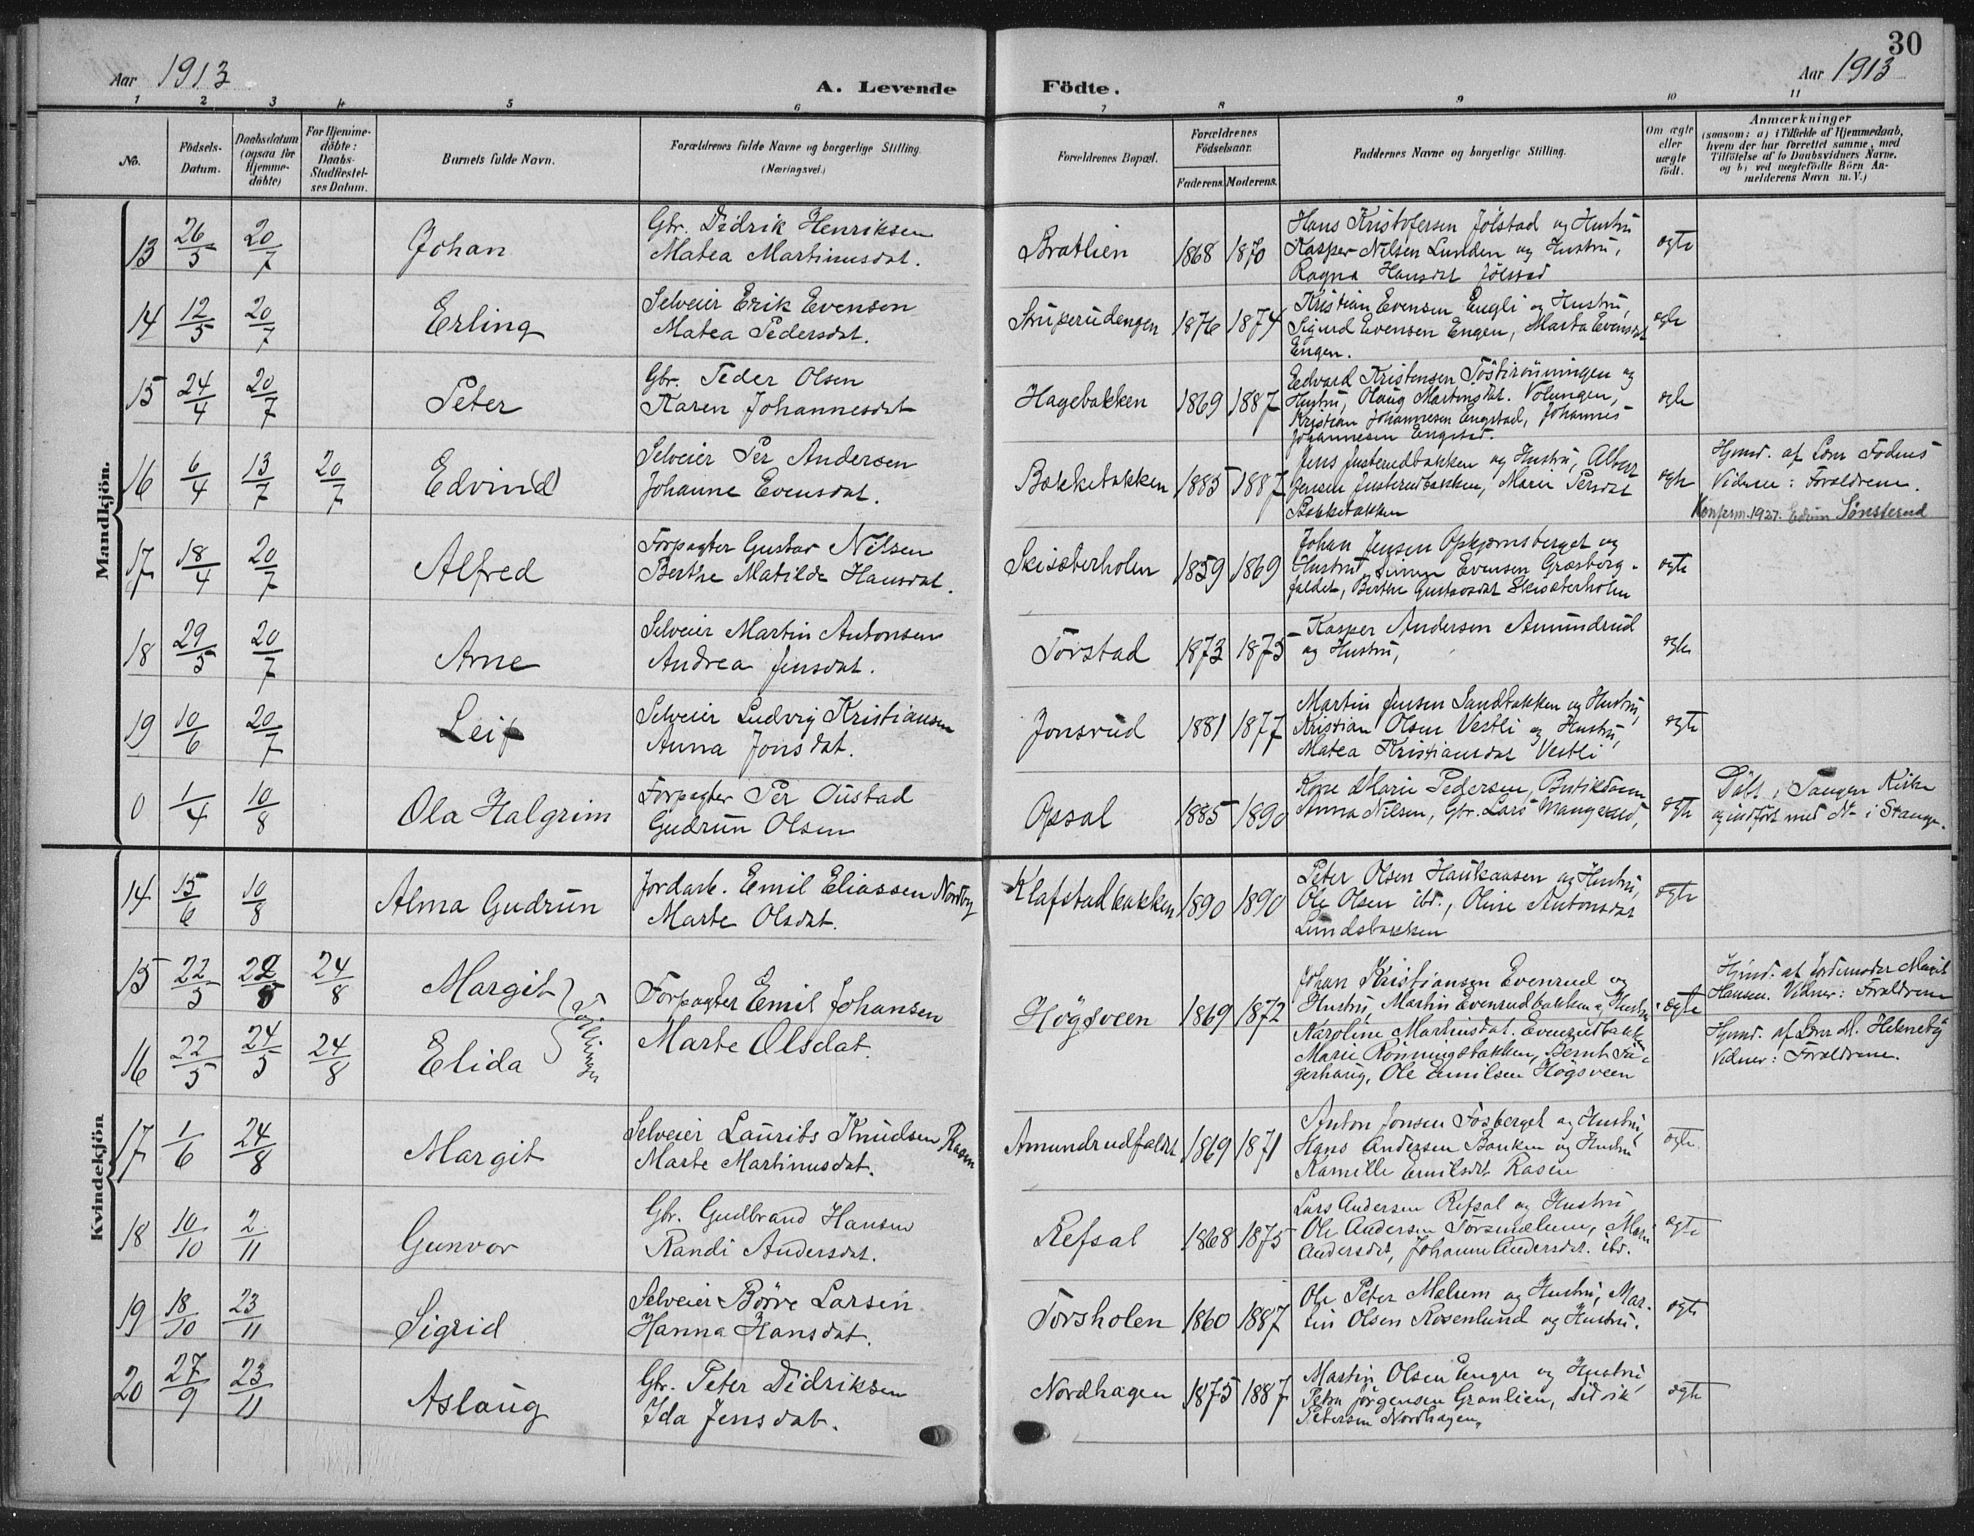 Aar 1913
A. Levende
Födte.
30
Aar 1913
1 2 3 4 5 6 7 8 9 10 11
No.
Födsels-
Datum.
Daabsdatum
(ogsaa for
Hjemme-
döbte)
For Hjemme-
döbte:
Daabs-
Stadfestel-
ses Datum.
Barnets fulde Navn.
Forældrenes fulde Navne og borgerlige Stilling.
(Næringsvei.)
Forældrenes Bopæl.
Forældrenes
Födselsaar.
Faderens. Moderens.
Faddernes Navne og borgerlige Stilling.
Om ægte
eller
uægte
födt.
Anmærkninger
(saasom: a) i Tilfælde af Hjemmedaab,
hvem der har forrettet samme, med
Tilföielse af to Daabsvidners Navne,
og b) ved uægtefödte Börn An-
melderens Navn m. V.)
Mandkjön.
13 26/5 20/7 Johan
Gbr. Didrik Henriksen
Matea Martinusdat.
Bratlien 1868 1870
Hans Kristofersen Jölstad og Hustru
Kasper Nilsen Lunden og Hustru,
Ragna Hansdat Jölstad
ægte
14 12/5 20/7 Erling
Selveier Erik Evensen
Matea Pedersdat.
Struperudengen 1876 1874
Kristian Evensen Engli og Hustru,
Sigurd Evensen Engen, Marta Evensdat
Engen.
ægte
15 24/4 20/7 Peter
Gbr. Peder Olsen
Karen Johannesdat
Hagebakken 1869 1887
Edvard Kristensen Töstirönningen og
Hustru, Olaug Martinsdat. Volungen,
Kristian Johannesen Engstad, Johannes
Johannesen Engstad.
ægte
16 6/4 13/7 20/7 Edvin(d)
Selveier Per Andersen
Johanne Evensdat.
Bækkebakken 1885 1887
Jens Justerudbakken og Hustru,
Jensen Justerudbakken, Marie Persdat
Bækkebakken
ægte
Hjmd. af Lærer Fodnes
Vidner: Forældrene.
Konfirm. 1927. Edvin Sönsterud
17 18/4 20/7 Alfred
Forpagter Gustav Nilsen
Berthe Matilde Hansdat.
Skisæterholen 1859 1869
Johan Jensen Opkjærnsberget og
Hustru Simen Evensen Græsberg-
faldet, Berthe Gustavsdat Skisæterholen
ægte
18 29/5 20/7 Arne
Selveier Martin Antonsen
Andrea Jensdat.
Torstad 1873 1875
Kasper Andersen Amundrud
og Hustru,
ægte
19 10/6 20/7 Leif
Selveier Ludvig Kristiansen
Anna Jonsdat.
Jonsrud 1881 1877
Martin Jensen Sandbakken og Hustru,
Kristian Olsen Vestli og Hustru,
Matea Kristiansdat Vestli
ægte
0 1/4 10/8 Ola Halgrim
Forpagter Per Oustad
Gudrun Olsen
Opsal 1885 1890
Kone Marie Pedersen, Butikdame
Anna Nilsen, Gbr. Lars Mangerud,
ægte
Döbt i Tangen Kirke
og indfört med No i Stange.
Kvindekjön
14 15/6 10/8 Alma Gudrun
Jordarb. Emil Eliassen Nordby
Marte Olsdat.
Klafstadbakken 1890 1890
Peter Olsen Haukaasen og Hustru,
Ole Olsen ibd., Oline Antonsdat
Lundsbakken
ægte
15 22/5 22/5 24/8 Margit
Tvillinger
Forpagter Emil Johansen
Marte Olsdat.
Högsveen 1869 1872
Johan Kristiansen Evenrud og
Hustru, Martin Evenrudbakken og Hustru
Karoline Martinsdat. Evenrudbakken
Marie Rönningsbakken, Bernt Fa-
gerhaug, Ole Emilsen Högsveen
ægte
Hjmd. af Jordemoder Marit
Hansen. Vidner: Forældrene
16 22/5 24/5 24/8 Elida
Hjmd. af Lærer M. Helseby
Vidner: Forældrene.
17 1/6 24/8 Margit
Selveier Laurits Knudsen Rasen
Marte Martinusdat.
Amundrudfaldet 1869 1871
Anton Jonsen Fosberget og Hustru,
Hans Andersen Bakken og Hustru
Kamille Emilsdat Rasen
ægte
18 10/10 2/11 Gunvor
Gbr. Gudbrand Hansen
Randi Andersdat.
Refsal 1868 1875
Lars Andersen Refsal og Hustru,
Ole Andersen Torsmælum, Mari
Andersdat, Johanne Andersdat. ibd.
ægte
19 18/10 23/11 Sigrid
Selveier Börre Larsen
Hanna Hansdat.
Torsholen 1860 1887
Ole Peter Melum og Hustru, Mar-
tin Olsen Rosenlund og Hustru.
ægte
20 27/9 23/11 Aslaug
Gbr. Peter Didriksen
Ida Jensdat.
Nordhagen 1875 1887
Martin Olsen Enger og Hustru,
Petra Jörgensen Granlien, Didrik
Petersen Nordhagen,
ægte